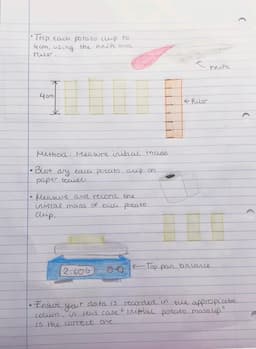 • Trip each potato chip to
4cm, using the knife and
Ruler.
knife
4cm
← Ruler
Method: Measure initial mass
• Blot dry each potato chip on
paper towel.
• Measure and record the
initial mass of each potato
chip.
2.60G
← Top pan balance
• Ensure your data is recorded in the appropriate
column, in this case "Initial potato mass/g"
is the correct one